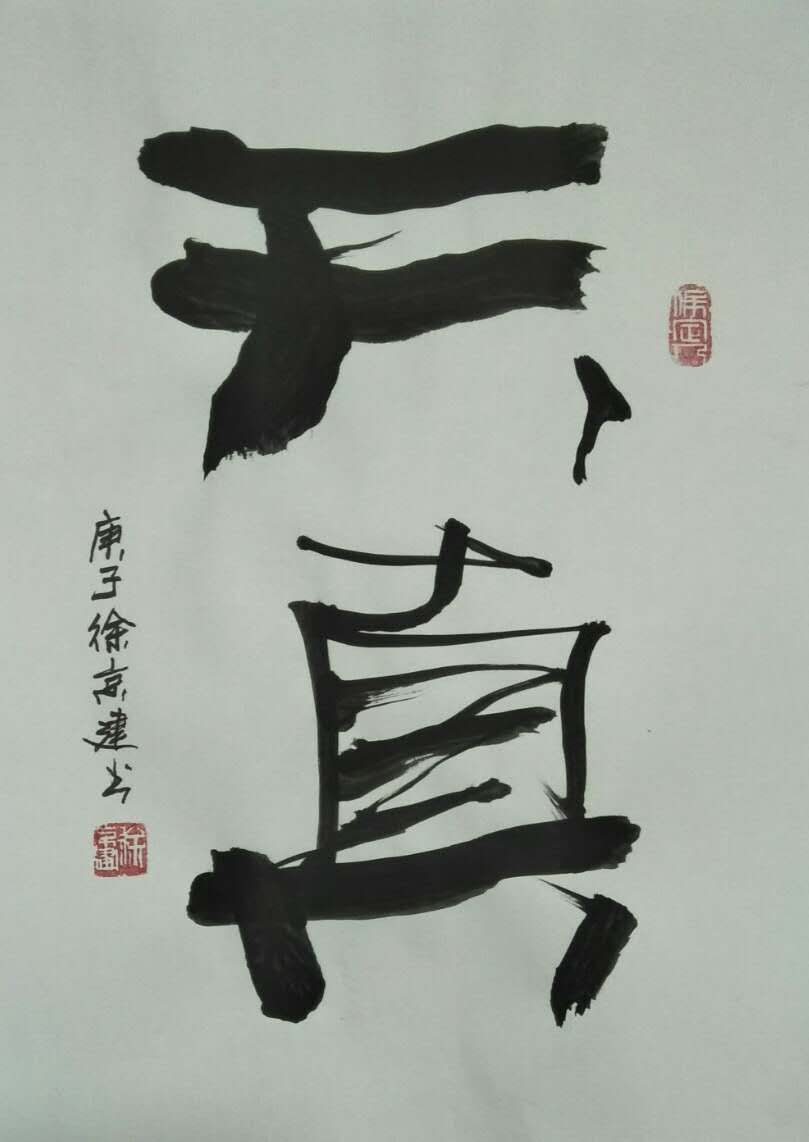 天真
庚子徐京建书